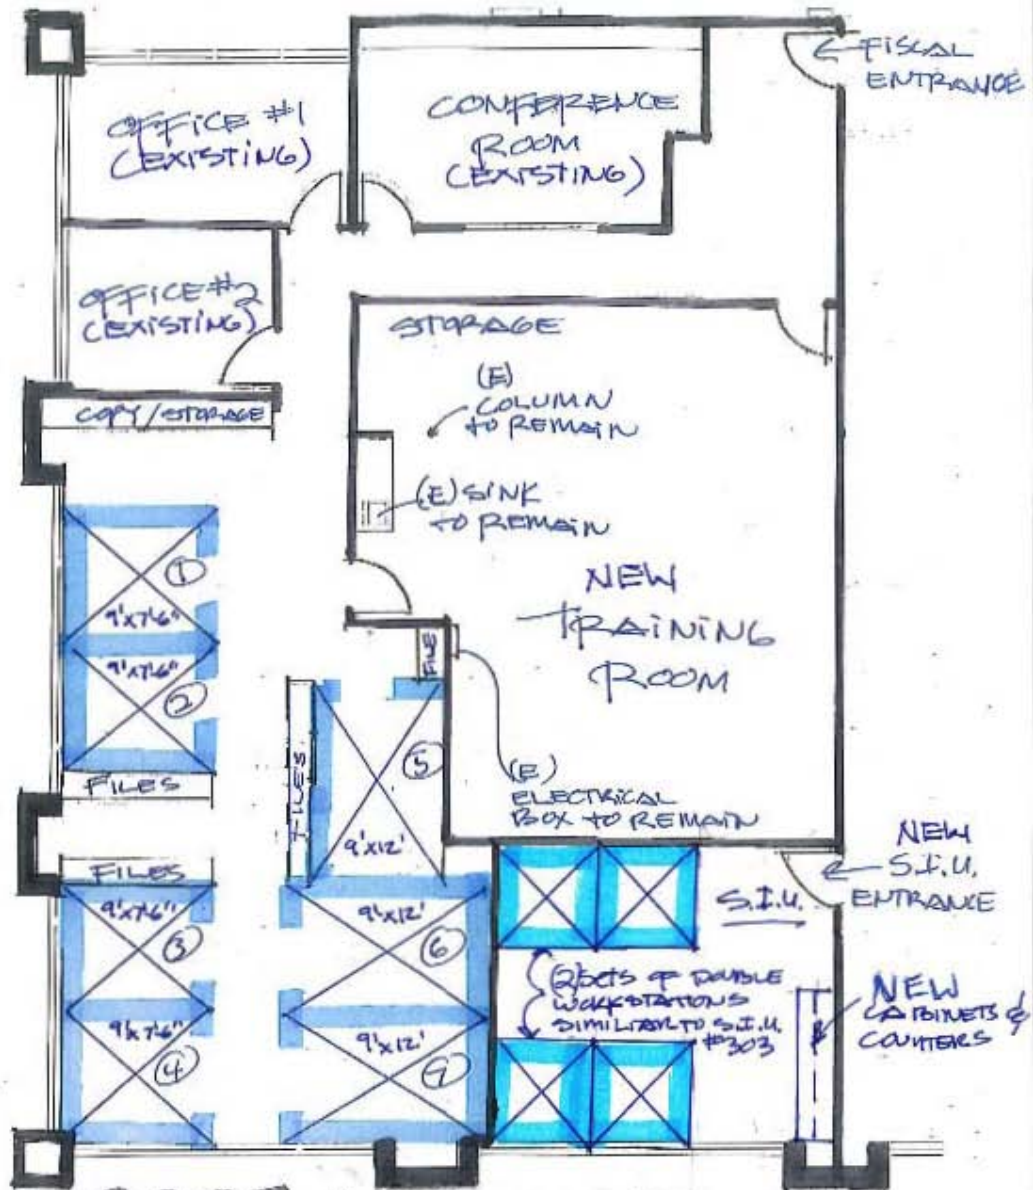 FISCAL
ENTRANCE
OFFICE #1
(EXISTING)
CONFERENCE
ROOM
(EXISTING)
OFFICE #2
(EXISTING)
STORAGE
(E)
COLUMN
TO REMAIN
COPY/STORAGE
(E) SINK
TO REMAIN
1
9'x7'6"
9'x7'6"
2
FILES
NEW
TRAINING
ROOM
FILE
FILES
5
9'x12'
(E)
ELECTRICAL
BOX TO REMAIN
NEW
S.I.U.
ENTRANCE
FILES
9'x7'6"
3
9'x7'6"
4
9'x12'
6
9'x12'
7
S.I.U.
(2) SETS OF DOUBLE
WORKSTATIONS
SIMILIAR TO S.I.U.
#303
NEW
CABINETS &
COUNTERS